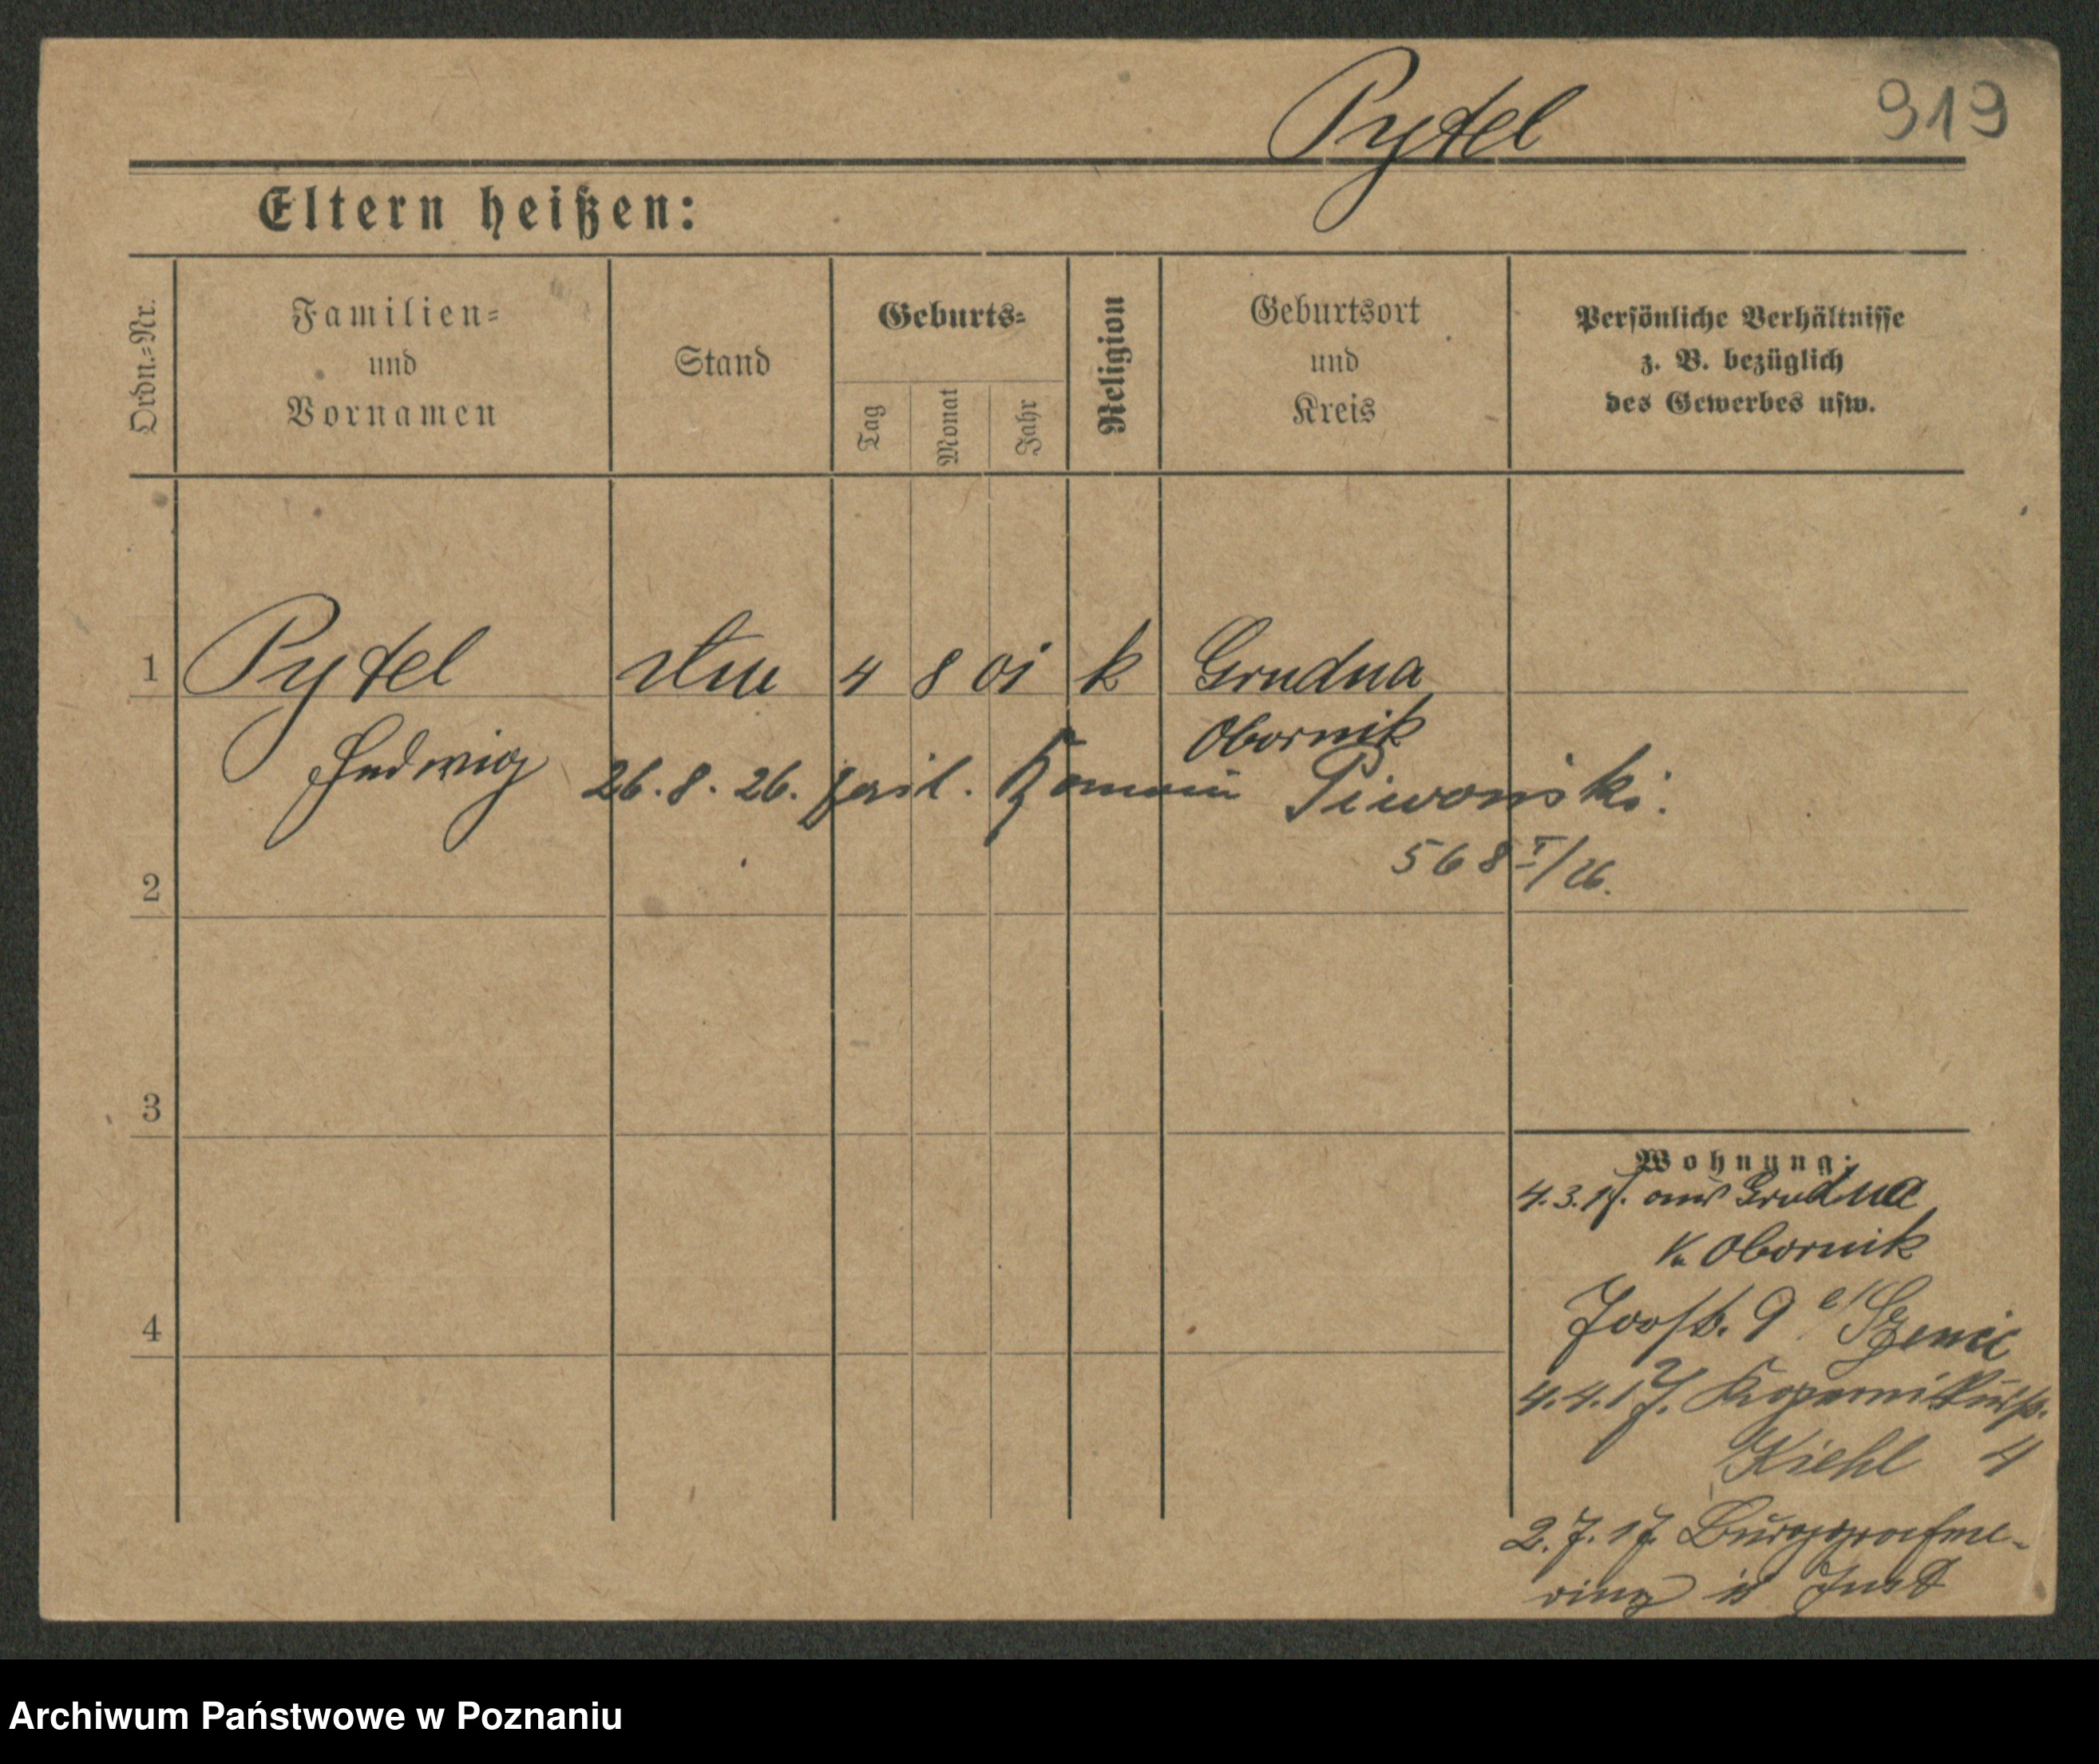 Pytel 919
Eltern heißen:
Ordn.=Nr.
Familien=
und
Vornamen
Stand
Geburts=
Tag
Monat
Jahr
Religion
Geburtsort
und
Kreis
Persönliche Verhältnisse
z. B. bezüglich
des Gewerbes usw.
1 Pytel 4 8 01 k Grudna
Obornik
Hedwig 26.8.26. Piwoński.
568 I/26.
2
3
4
Wohnung:
4.3.17. aus Grudna
K. Obornik
9
4.4.17. Kopernikusstr.
Kiehl 4
2.7.17. Burggrafen-
ring
Archiwum Państwowe w Poznaniu